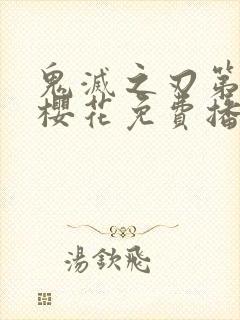 鬼滅之刃第
櫻花免費播
湯欽飛